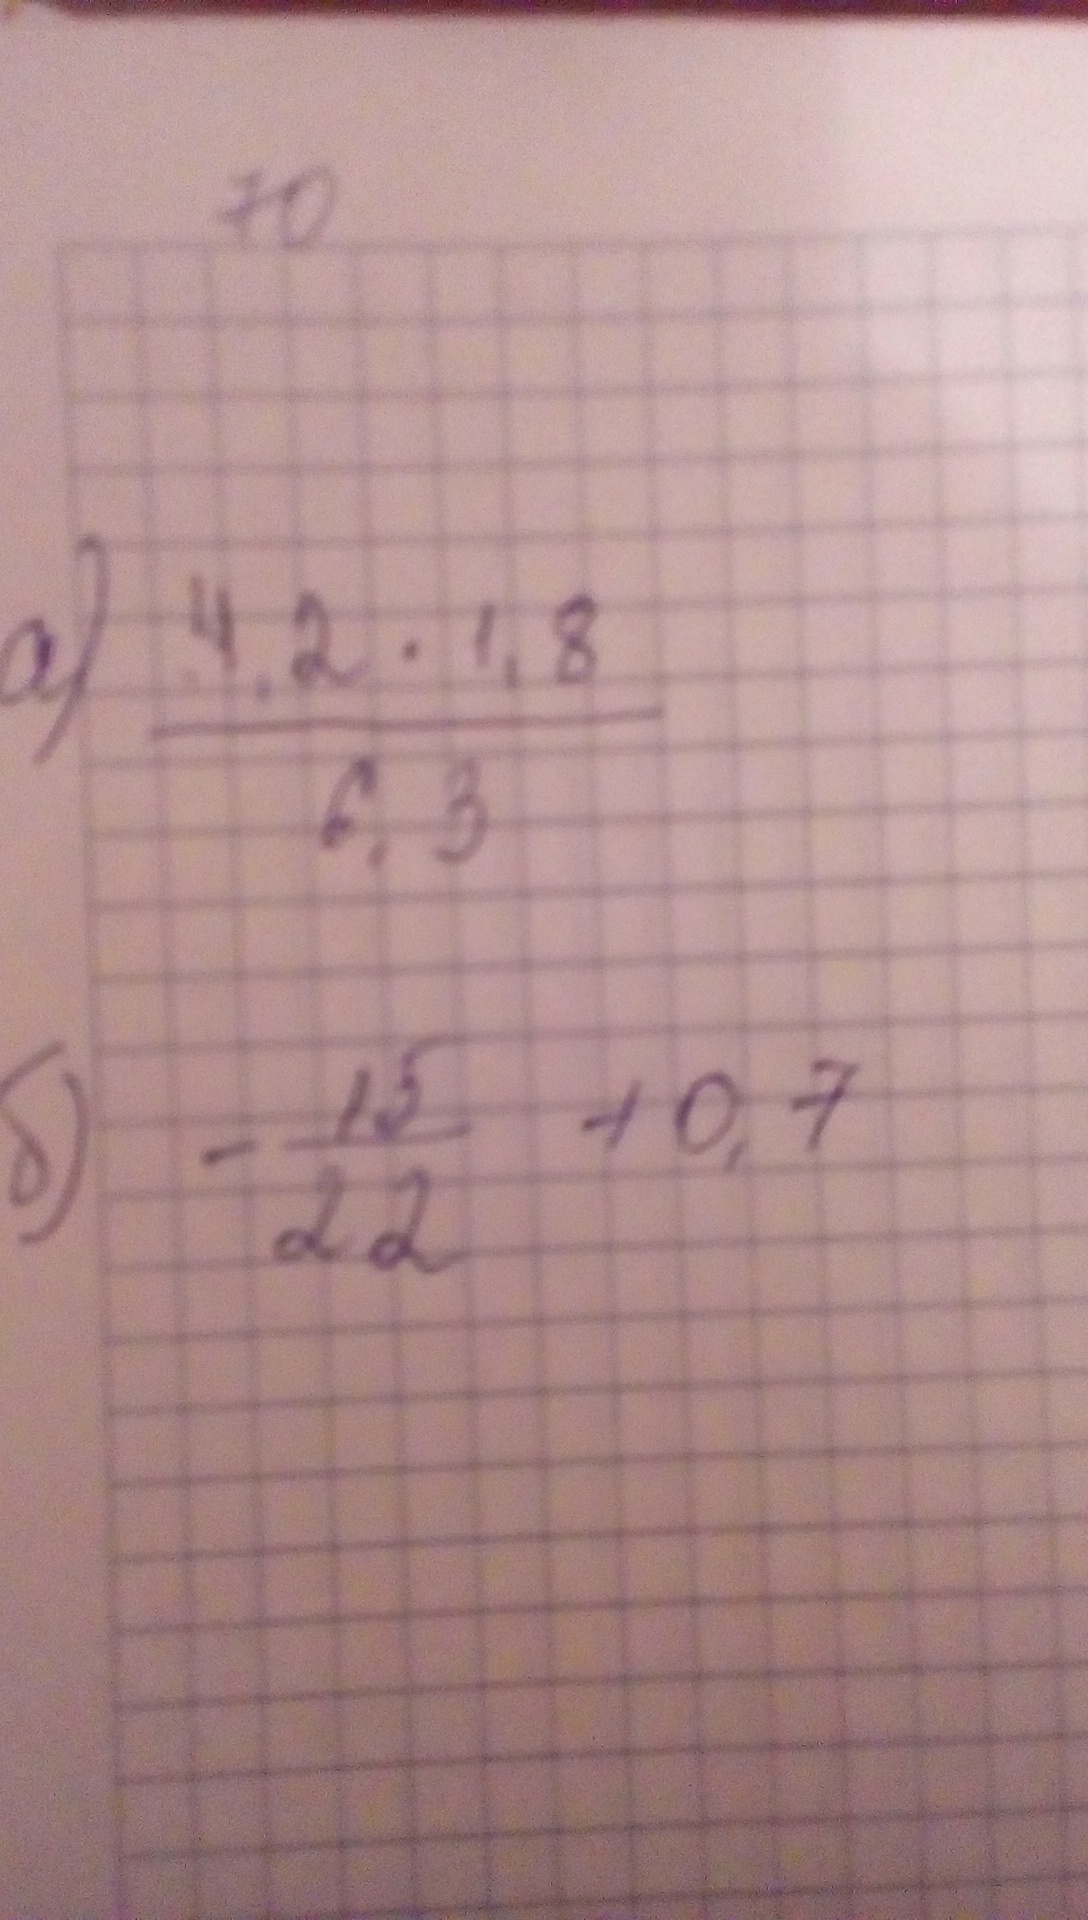 70
а) 4,2 · 1,8
6,3
б) - 15/22 + 0,7